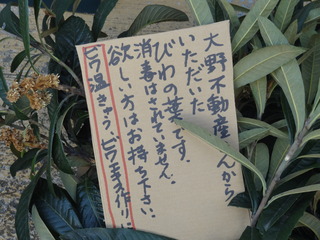 大野不動産さんから
いただいた
びわの葉です。
消毒はされていません。
欲しい方はお持ち下さい。
ビワ温きゅう、ビワエキス作りに